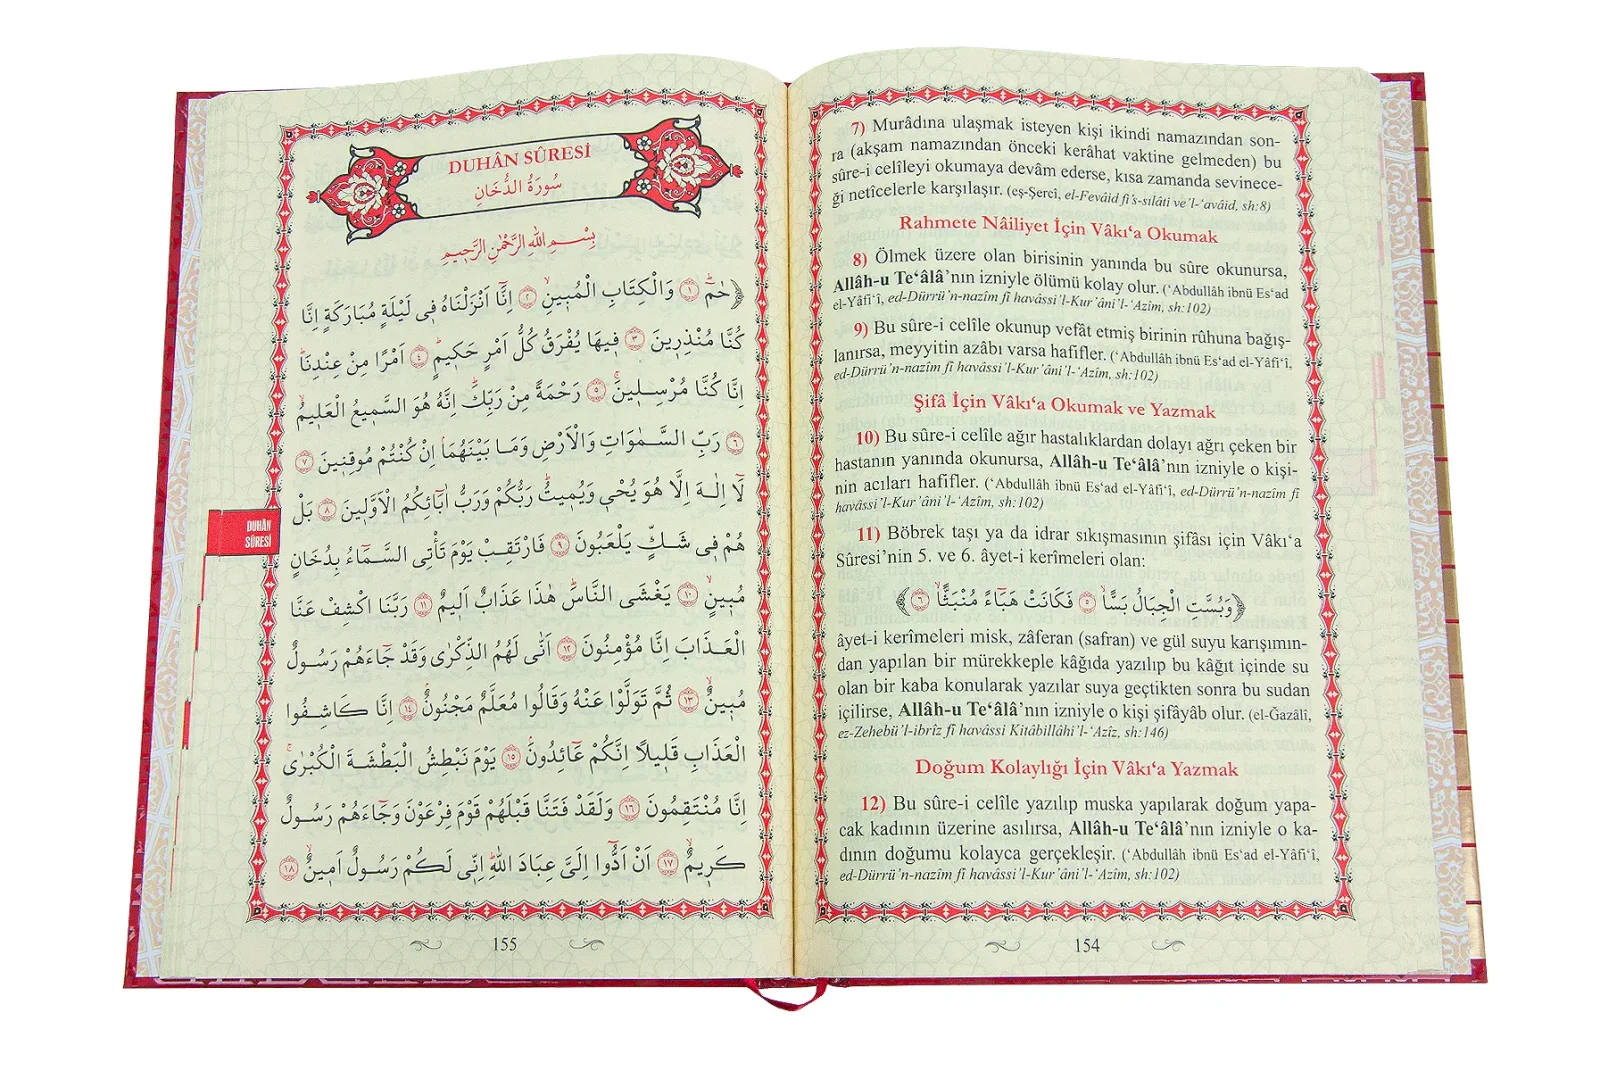 7) Murâdına ulaşmak isteyen kişi ikindi namazından son-
ra (akşam namazından önceki kerâhat vaktine gelmeden) bu
sûre-i celîleyi okumaya devâm ederse, kısa zamanda sevinece-
ği netîcelerle karşılaşır. (eş-Şercî, el-Fevâid fi's-sılâti ve'l-'avâid, sh:8)
Rahmete Nâiliyet İçin Vâkı‘a Okumak
8) Ölmek üzere olan birisinin yanında bu sûre okunursa,
Allâh-u Te‘âlâ'nın izniyle ölümü kolay olur. (‘Abdullâh ibnü Es‘ad
el-Yâfi‘î, ed-Dürrü'n-nazîm fî havâssi'l-Kur'âni'l-‘Azîm, sh:102)
9) Bu sûre-i celîle okunup vefât etmiş birinin rûhuna bağış-
lanırsa, meyyitin azâbı varsa hafifler. (‘Abdullâh ibnü Es‘ad el-Yâfi‘î,
ed-Dürrü'n-nazîm fî havâssi'l-Kur'âni'l-‘Azîm, sh:102)
Şifâ İçin Vâkı‘a Okumak ve Yazmak
10) Bu sûre-i celîle ağır hastalıklardan dolayı ağrı çeken bir
hastanın yanında okunursa, Allâh-u Te‘âlâ'nın izniyle o kişi-
nin acıları hafifler. (‘Abdullâh ibnü Es‘ad el-Yâfi‘î, ed-Dürrü'n-nazîm fî
havâssi'l-Kur'âni'l-‘Azîm, sh:102)
11) Böbrek taşı ya da idrar sıkışmasının şifâsı için Vâkı‘a
Sûresi'nin 5. ve 6. âyet-i kerîmeleri olan:
﴿وَبُسَّتِ الْجِبَالُ بَسًّاۙ ﴿٥﴾ فَكَانَتْ هَبَٓاءً مُنْبَثًّاۙ ﴿٦﴾﴾
âyet-i kerîmeleri misk, zâferan (safran) ve gül suyu karışımın-
dan yapılan bir mürekkeple kâğıda yazılıp bu kâğıt içinde su
olan bir kaba konularak yazılar suya geçtikten sonra bu sudan
içilirse, Allâh-u Te‘âlâ'nın izniyle o kişi şifâyâb olur. (el-Ğazâlî,
ez-Zehebü'l-ibrîz fî havâssi Kitâbillâhi'l-‘Azîz, sh:146)
Doğum Kolaylığı İçin Vâkı‘a Yazmak
12) Bu sûre-i celîle yazılıp muska yapılarak doğum yapa-
cak kadının üzerine asılırsa, Allâh-u Te‘âlâ'nın izniyle o ka-
dının doğumu kolayca gerçekleşir. (‘Abdullâh ibnü Es‘ad el-Yâfi‘î,
ed-Dürrü'n-nazîm fî havâssi'l-Kur'âni'l-‘Azîm, sh:102)
154
DUHÂN SÛRESİ
سُورَةُ الدُّخَانِ
بِسْمِ اللهِ الرَّحْمٰنِ الرَّحِيمِ
﴿حٰمٓۚ ﴿١﴾ وَالْكِتَابِ الْمُبِينِۙ ﴿٢﴾ اِنَّٓا اَنْزَلْنَاهُ فِي لَيْلَةٍ مُبَارَكَةٍ اِنَّا
كُنَّا مُنْذِرِينَ ﴿٣﴾ فِيهَا يُفْرَقُ كُلُّ اَمْرٍ حَكِيمٍۙ ﴿٤﴾ اَمْرًا مِنْ عِنْدِنَاۜ
اِنَّا كُنَّا مُرْسِلِينَۚ ﴿٥﴾ رَحْمَةً مِنْ رَبِّكَۜ اِنَّهُ هُوَ السَّمِيعُ الْعَلِيمُۙ
﴿٦﴾ رَبِّ السَّمٰوَاتِ وَالْاَرْضِ وَمَا بَيْنَهُمَاۢ اِنْ كُنْتُمْ مُوقِنِينَ ﴿٧﴾
لَٓا اِلٰهَ اِلَّا هُوَ يُحْيِي وَيُمِيتُۜ رَبُّكُمْ وَرَبُّ اٰبَٓائِكُمُ الْاَوَّلِينَ ﴿٨﴾ بَلْ
هُمْ فِي شَكٍّ يَلْعَبُونَ ﴿٩﴾ فَارْتَقِبْ يَوْمَ تَأْتِي السَّمَٓاءُ بِدُخَانٍ
مُبِينٍۙ ﴿١٠﴾ يَغْشَى النَّاسَۜ هٰذَا عَذَابٌ اَلِيمٌ ﴿١١﴾ رَبَّنَا اكْشِفْ عَنَّا
الْعَذَابَ اِنَّا مُؤْمِنُونَ ﴿١٢﴾ اَنّٰى لَهُمُ الذِّكْرٰى وَقَدْ جَٓاءَهُمْ رَسُولٌ
مُبِينٌۙ ﴿١٣﴾ ثُمَّ تَوَلَّوْا عَنْهُ وَقَالُوا مُعَلَّمٌ مَجْنُونٌۢ ﴿١٤﴾ اِنَّا كَاشِفُوا
الْعَذَابِ قَلِيلًا اِنَّكُمْ عَٓائِدُونَۢ ﴿١٥﴾ يَوْمَ نَبْطِشُ الْبَطْشَةَ الْكُبْرٰىۚ
اِنَّا مُنْتَقِمُونَ ﴿١٦﴾ وَلَقَدْ فَتَنَّا قَبْلَهُمْ قَوْمَ فِرْعَوْنَ وَجَٓاءَهُمْ رَسُولٌ
كَرِيمٌۙ ﴿١٧﴾ اَنْ اَدُّٓوا اِلَيَّ عِبَادَ اللهِۜ اِنِّي لَكُمْ رَسُولٌ اَمِينٌۙ ﴿١٨﴾
DUHÂN
SÛRESİ
155